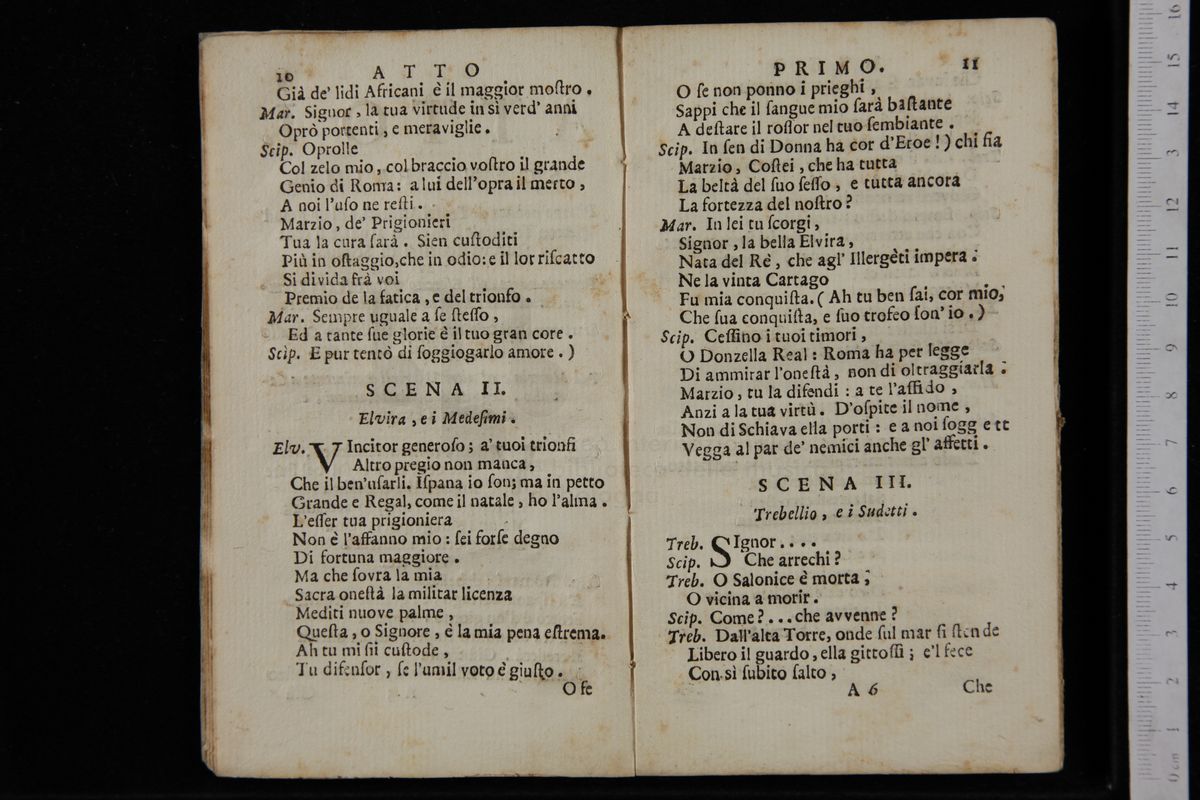 10 ATTO
Già de' lidi Africani è il maggior moſtro.
Mar. Signor, la tua virtude in sì verd' anni
Oprò portenti, e meraviglie.
Scip. Oprolle
Col zelo mio, col braccio voſtro il grande
Genio di Roma: a lui dell'opra il merto,
A noi l'uſo ne reſti.
Marzio, de' Prigionieri
Tua la cura ſarà. Sien cuſtoditi
Più in oſtaggio, che in odio: e il lor riſcatto
Si divida frà voi
Premio de la fatica, e del trionfo.
Mar. Sempre uguale a ſe ſteſſo,
Ed a tante ſue glorie è il tuo gran core.
Scip. E pur tentò di ſoggiogarlo amore.)
SCENA II.
Elvira, e i Medeſimi.
Elv. VIncitor generoſo; a' tuoi trionfi
Altro pregio non manca,
Che il ben'uſarli. Iſpana io ſon; ma in petto
Grande e Regal, come il natale, ho l'alma.
L'eſſer tua prigioniera
Non è l'affanno mio: ſei forſe degno
Di fortuna maggiore.
Ma che ſovra la mia
Sacra oneſtà la militar licenza
Mediti nuove palme,
Queſta, o Signore, è la mia pena eſtrema.
Ah tu mi ſii cuſtode,
Tu difenſor, ſe l'umil voto è giuſto.
O ſe
PRIMO. 11
O ſe non ponno i prieghi,
Sappi che il ſangue mio ſarà baſtante
A deſtare il roſſor nel tuo ſembiante.
Scip. In ſen di Donna ha cor d'Eroe!) chi fia
Marzio, Coſtei, che ha tutta
La beltà del ſuo ſeſſo, e tutta ancora
La fortezza del noſtro?
Mar. In lei tu ſcorgi,
Signor, la bella Elvira,
Nata del Rè, che agl' Illergèti impera.
Ne la vinta Cartago
Fu mia conquiſta. (Ah tu ben ſai, cor mio,
Che ſua conquiſta, e ſuo trofeo ſon' io.)
Scip. Ceſſino i tuoi timori,
O Donzella Real: Roma ha per legge
Di ammirar l'oneſtà, non di oltraggiarla.
Marzio, tu la difendi: a te l'affido,
Anzi a la tua virtù. D'oſpite il nome,
Non di Schiava ella porti: e a noi ſogg e tt
Vegga al par de' nemici anche gl' affetti.
SCENA III.
Trebellio, e i Sudetti.
Treb. SIgnor....
Scip. Che arrechi?
Treb. O Salonice è morta;
O vicina a morir.
Scip. Come?...che avvenne?
Treb. Dall'alta Torre, onde ſul mar ſi ſtende
Libero il guardo, ella gittoſſi; e'l fece
Con sì ſubito ſalto,
A 6 Che